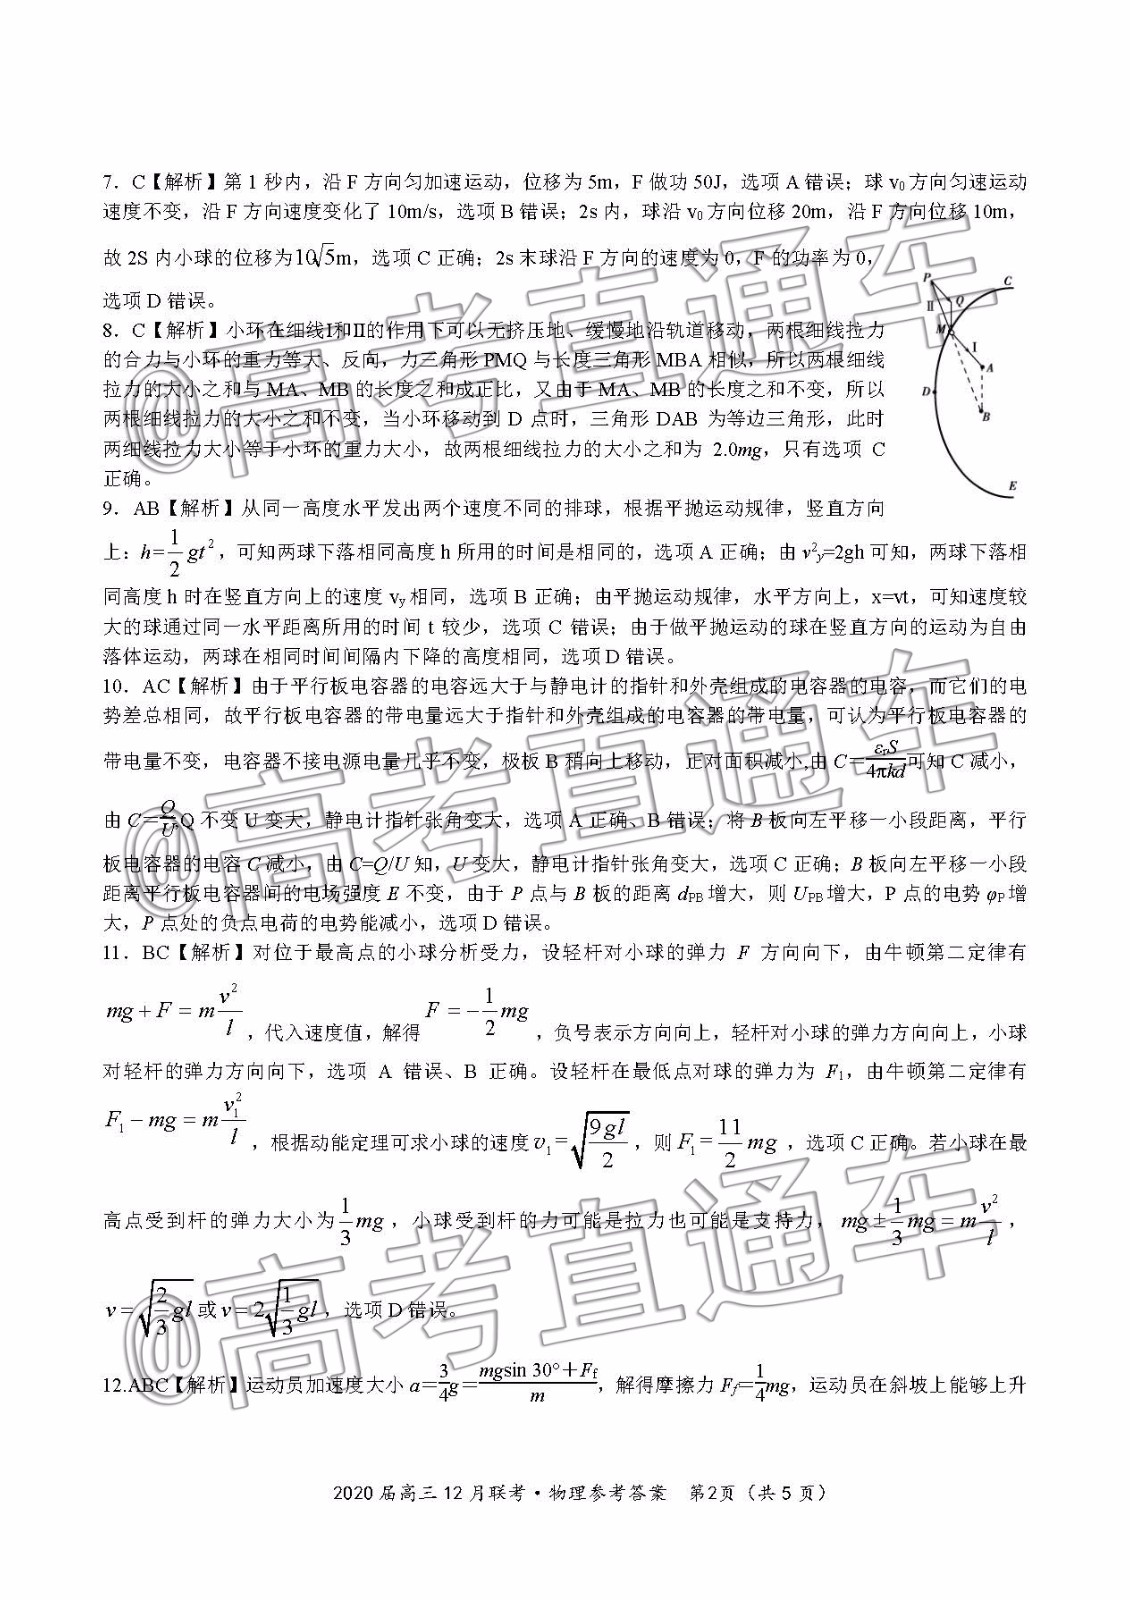 7．C【解析】第 1 秒内，沿 F 方向匀加速运动，位移为 5m，F 做功 50J，选项 A 错误；球 v₀ 方向匀速运动
速度不变，沿 F 方向速度变化了 10m/s，选项 B 错误；2s 内，球沿 v₀ 方向位移 20m，沿 F 方向位移 10m，
故 2S 内小球的位移为10√5m，选项 C 正确；2s 末球沿 F 方向的速度为 0，F 的功率为 0，
选项 D 错误。
8．C【解析】小环在细线Ⅰ和Ⅱ的作用下可以无挤压地、缓慢地沿轨道移动，两根细线拉力
的合力与小环的重力等大、反向，力三角形 PMQ 与长度三角形 MBA 相似，所以两根细线
拉力的大小之和与 MA、MB 的长度之和成正比，又由于 MA、MB 的长度之和不变，所以
两根细线拉力的大小之和不变，当小环移动到 D 点时，三角形 DAB 为等边三角形，此时
两细线拉力大小等于小环的重力大小，故两根细线拉力的大小之和为 2.0mg，只有选项 C
正确。
P
C
Ⅱ
Q
M
Ⅰ
A
D
B
E
9．AB【解析】从同一高度水平发出两个速度不同的排球，根据平抛运动规律，竖直方向
上：h=1/2 gt²，可知两球下落相同高度 h 所用的时间是相同的，选项 A 正确；由 v²y=2gh 可知，两球下落相
同高度 h 时在竖直方向上的速度 vy 相同，选项 B 正确；由平抛运动规律，水平方向上，x=vt，可知速度较
大的球通过同一水平距离所用的时间 t 较少，选项 C 错误；由于做平抛运动的球在竖直方向的运动为自由
落体运动，两球在相同时间间隔内下降的高度相同，选项 D 错误。
10．AC【解析】由于平行板电容器的电容远大于与静电计的指针和外壳组成的电容器的电容，而它们的电
势差总相同，故平行板电容器的带电量远大于指针和外壳组成的电容器的带电量，可认为平行板电容器的
带电量不变，电容器不接电源电量几乎不变，极板 B 稍向上移动，正对面积减小,由 C=εrS/4πkd可知 C 减小，
由 C=Q/U,Q 不变 U 变大，静电计指针张角变大，选项 A 正确、B 错误；将 B 板向左平移一小段距离，平行
板电容器的电容 C 减小，由 C=Q/U 知，U 变大，静电计指针张角变大，选项 C 正确；B 板向左平移一小段
距离平行板电容器间的电场强度 E 不变，由于 P 点与 B 板的距离 dPB 增大，则 UPB 增大，P 点的电势 φP 增
大，P 点处的负点电荷的电势能减小，选项 D 错误。
11．BC【解析】对位于最高点的小球分析受力，设轻杆对小球的弹力 F 方向向下，由牛顿第二定律有
mg+F=m v²/l，代入速度值，解得 F=-1/2 mg，负号表示方向向上，轻杆对小球的弹力方向向上，小球
对轻杆的弹力方向向下，选项 A 错误、B 正确。设轻杆在最低点对球的弹力为 F₁，由牛顿第二定律有
F₁-mg=m v₁²/l，根据动能定理可求小球的速度 v₁=√(9gl/2)，则 F₁=11/2 mg，选项 C 正确。若小球在最
高点受到杆的弹力大小为1/3 mg，小球受到杆的力可能是拉力也可能是支持力，mg±1/3 mg=m v²/l，
v=√(2/3 gl)或 v=2√(1/3 gl)，选项 D 错误。
12.ABC【解析】运动员加速度大小 a=3/4 g=(mgsin 30°+Ff)/m，解得摩擦力 Ff=1/4 mg，运动员在斜坡上能够上升
2020 届高三 12 月联考·物理参考答案 第2页（共 5 页）
@高考直通车
@高考直通车
@高考直通车